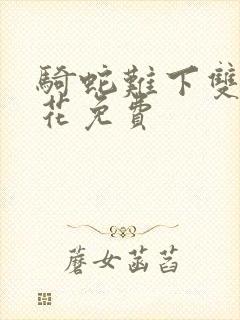 騎蛇難下雙
花免費
蘑女菡萏